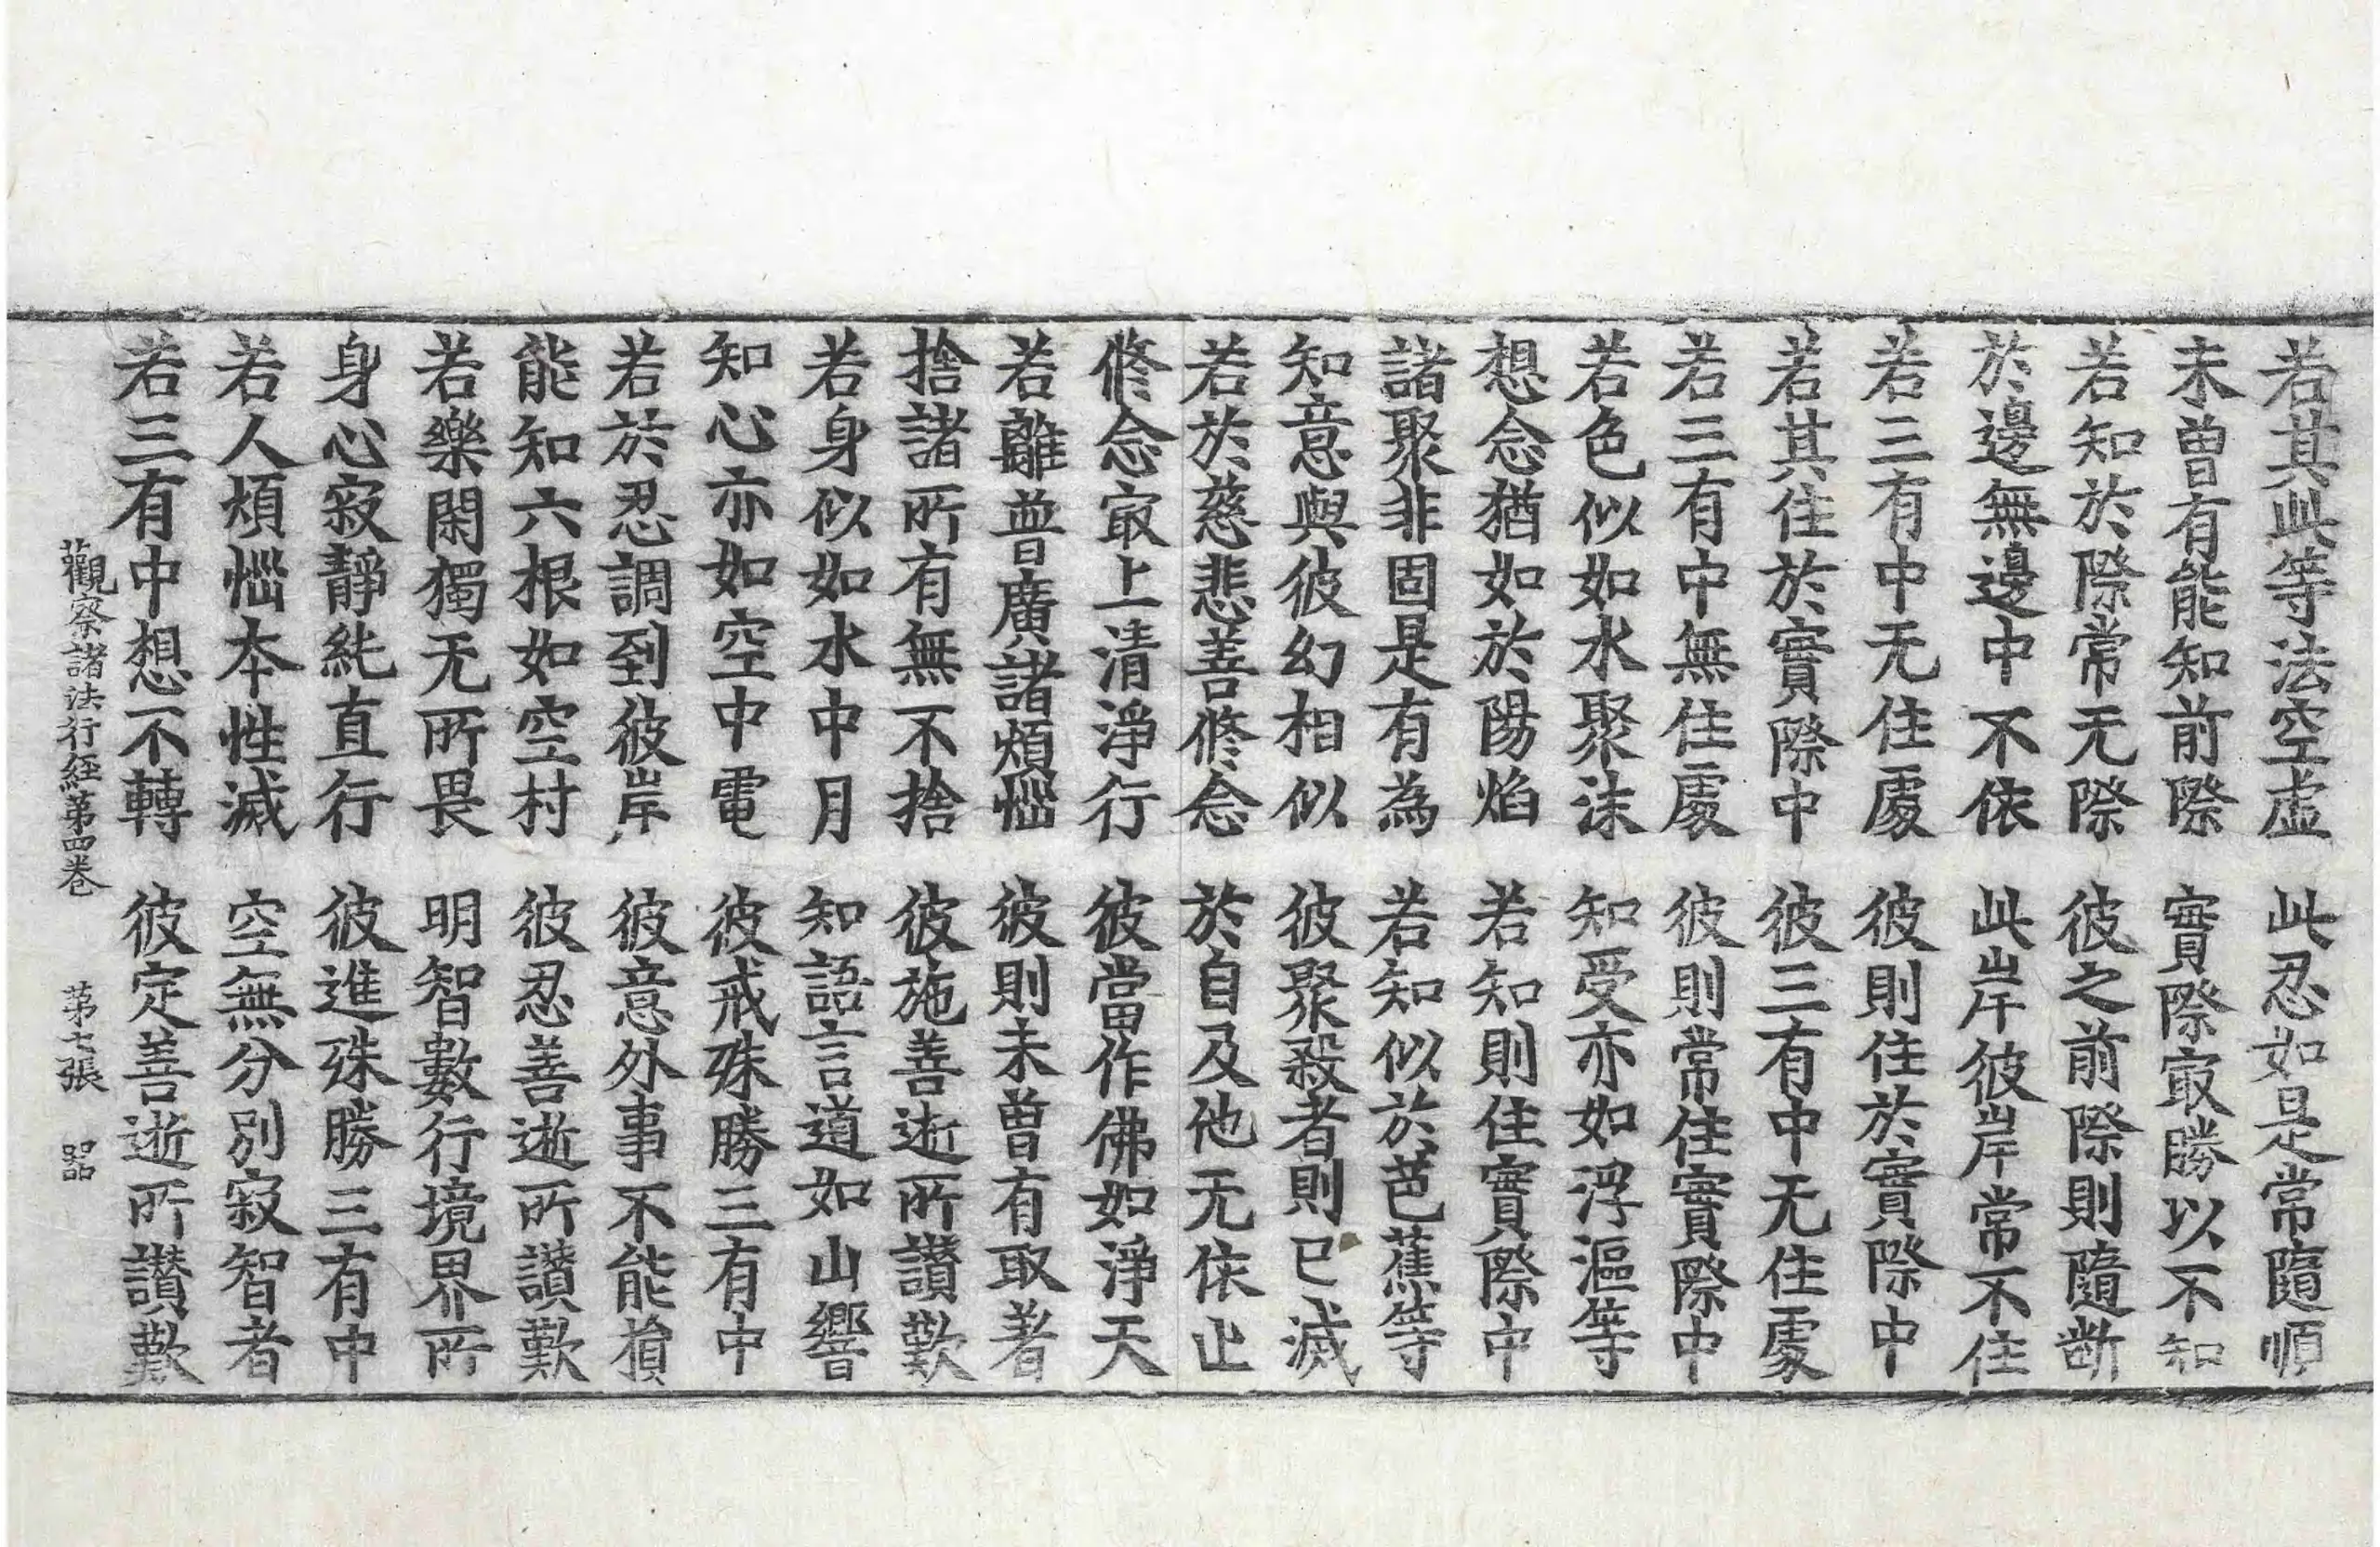 若其此等法空虛　此忍如是常隨順
未曾有能知前際　實際㝡勝以不知
若知於際常无際　彼之前際則隨断
於邊無邊中不依　此岸彼岸常不住
若三有中无住處　彼則住於實際中
若其住於實際中　彼三有中无住處
若三有中無住處　彼則常住實際中
若色似如水聚沫　知受亦如浮漚等
想念猶如於陽焰　若知則住實際中
諸聚非固是有為　若知似於芭蕉等
知意與彼幻相似　彼聚殺者則已滅
若於慈悲善修念　於自及他无依止
修念㝡上清淨行　彼當作佛如淨天
若離普廣諸煩惱　彼則未曾有取著
捨諸所有無不捨　彼施善逝所讃歎
若身似如水中月　知語言道如山響
知心亦如空中電　彼戒殊勝三有中
若於忍調到彼岸　彼意外事不能損
能知六根如空村　彼忍善逝所讃歎
若樂閑獨无所畏　明智數行境界所
身心寂靜純直行　彼進殊勝三有中
若人煩惱本性滅　空無分別寂智者
若三有中想不轉　彼定善逝所讃歎
觀察諸法行経第四巻　第七張　器